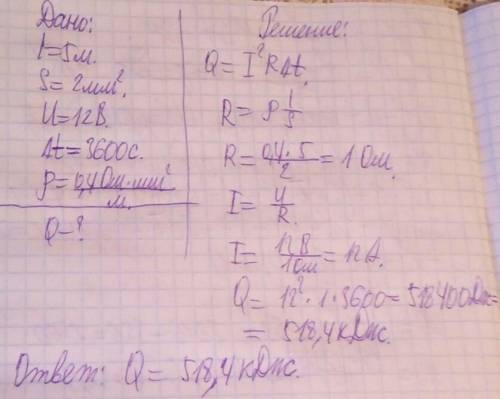 Дано:
l=5м.
S=2мм².
U=12В.
Δt=3600с.
ρ=0,4Ом·мм²
м.
Q-?
Решение:
Q=I²RΔt.
R=ρ l/S
R=0,4·5/2=1Ом.
I=U/R.
I=12В/1Ом=12А.
Q=12²·1·3600=518400Дж=
=518,4кДж.
Ответ: Q=518,4кДж.